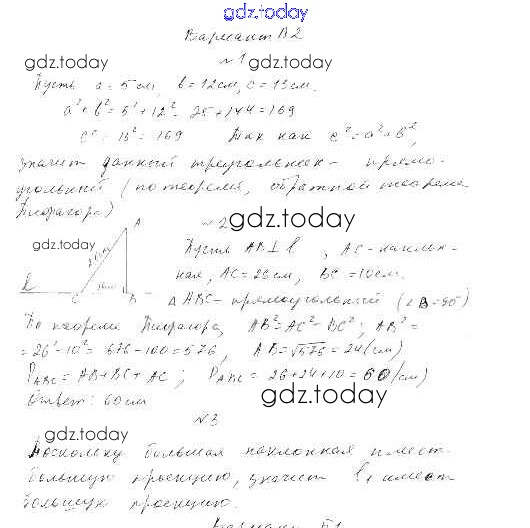 gdz.today
Вариант В2
gdz.today №1 gdz.today
Пусть a = 5 см, b = 12 см, c = 13 см.
a² + b² = 5² + 12² = 25 + 144 = 169
c² = 13² = 169 Так как c² = a² + b²,
значит данный треугольник - прямо-
угольный (по теореме, обратной теореме
Пифагора)
№2 gdz.today
A
gdz.today Пусть AB ⊥ l, AC - наклон-
26см ная, AC = 26 см, BC = 10 см.
l C 10см B △ABC - прямоугольный (∠B = 90°)
По теореме Пифагора, AB² = AC² - BC²; AB² =
= 26² - 10² = 676 - 100 = 576, AB = √576 = 24 (см)
gdz.today
P_ABC = AB + BC + AC; P_ABC = 26 + 24 + 10 = 60 (см)
Ответ: 60 см gdz.today
№3
gdz.today
Поскольку большая наклонная имеет
большую проекцию, значит l₁ имеет
большую проекцию.
gdz.today
Вариант Б1